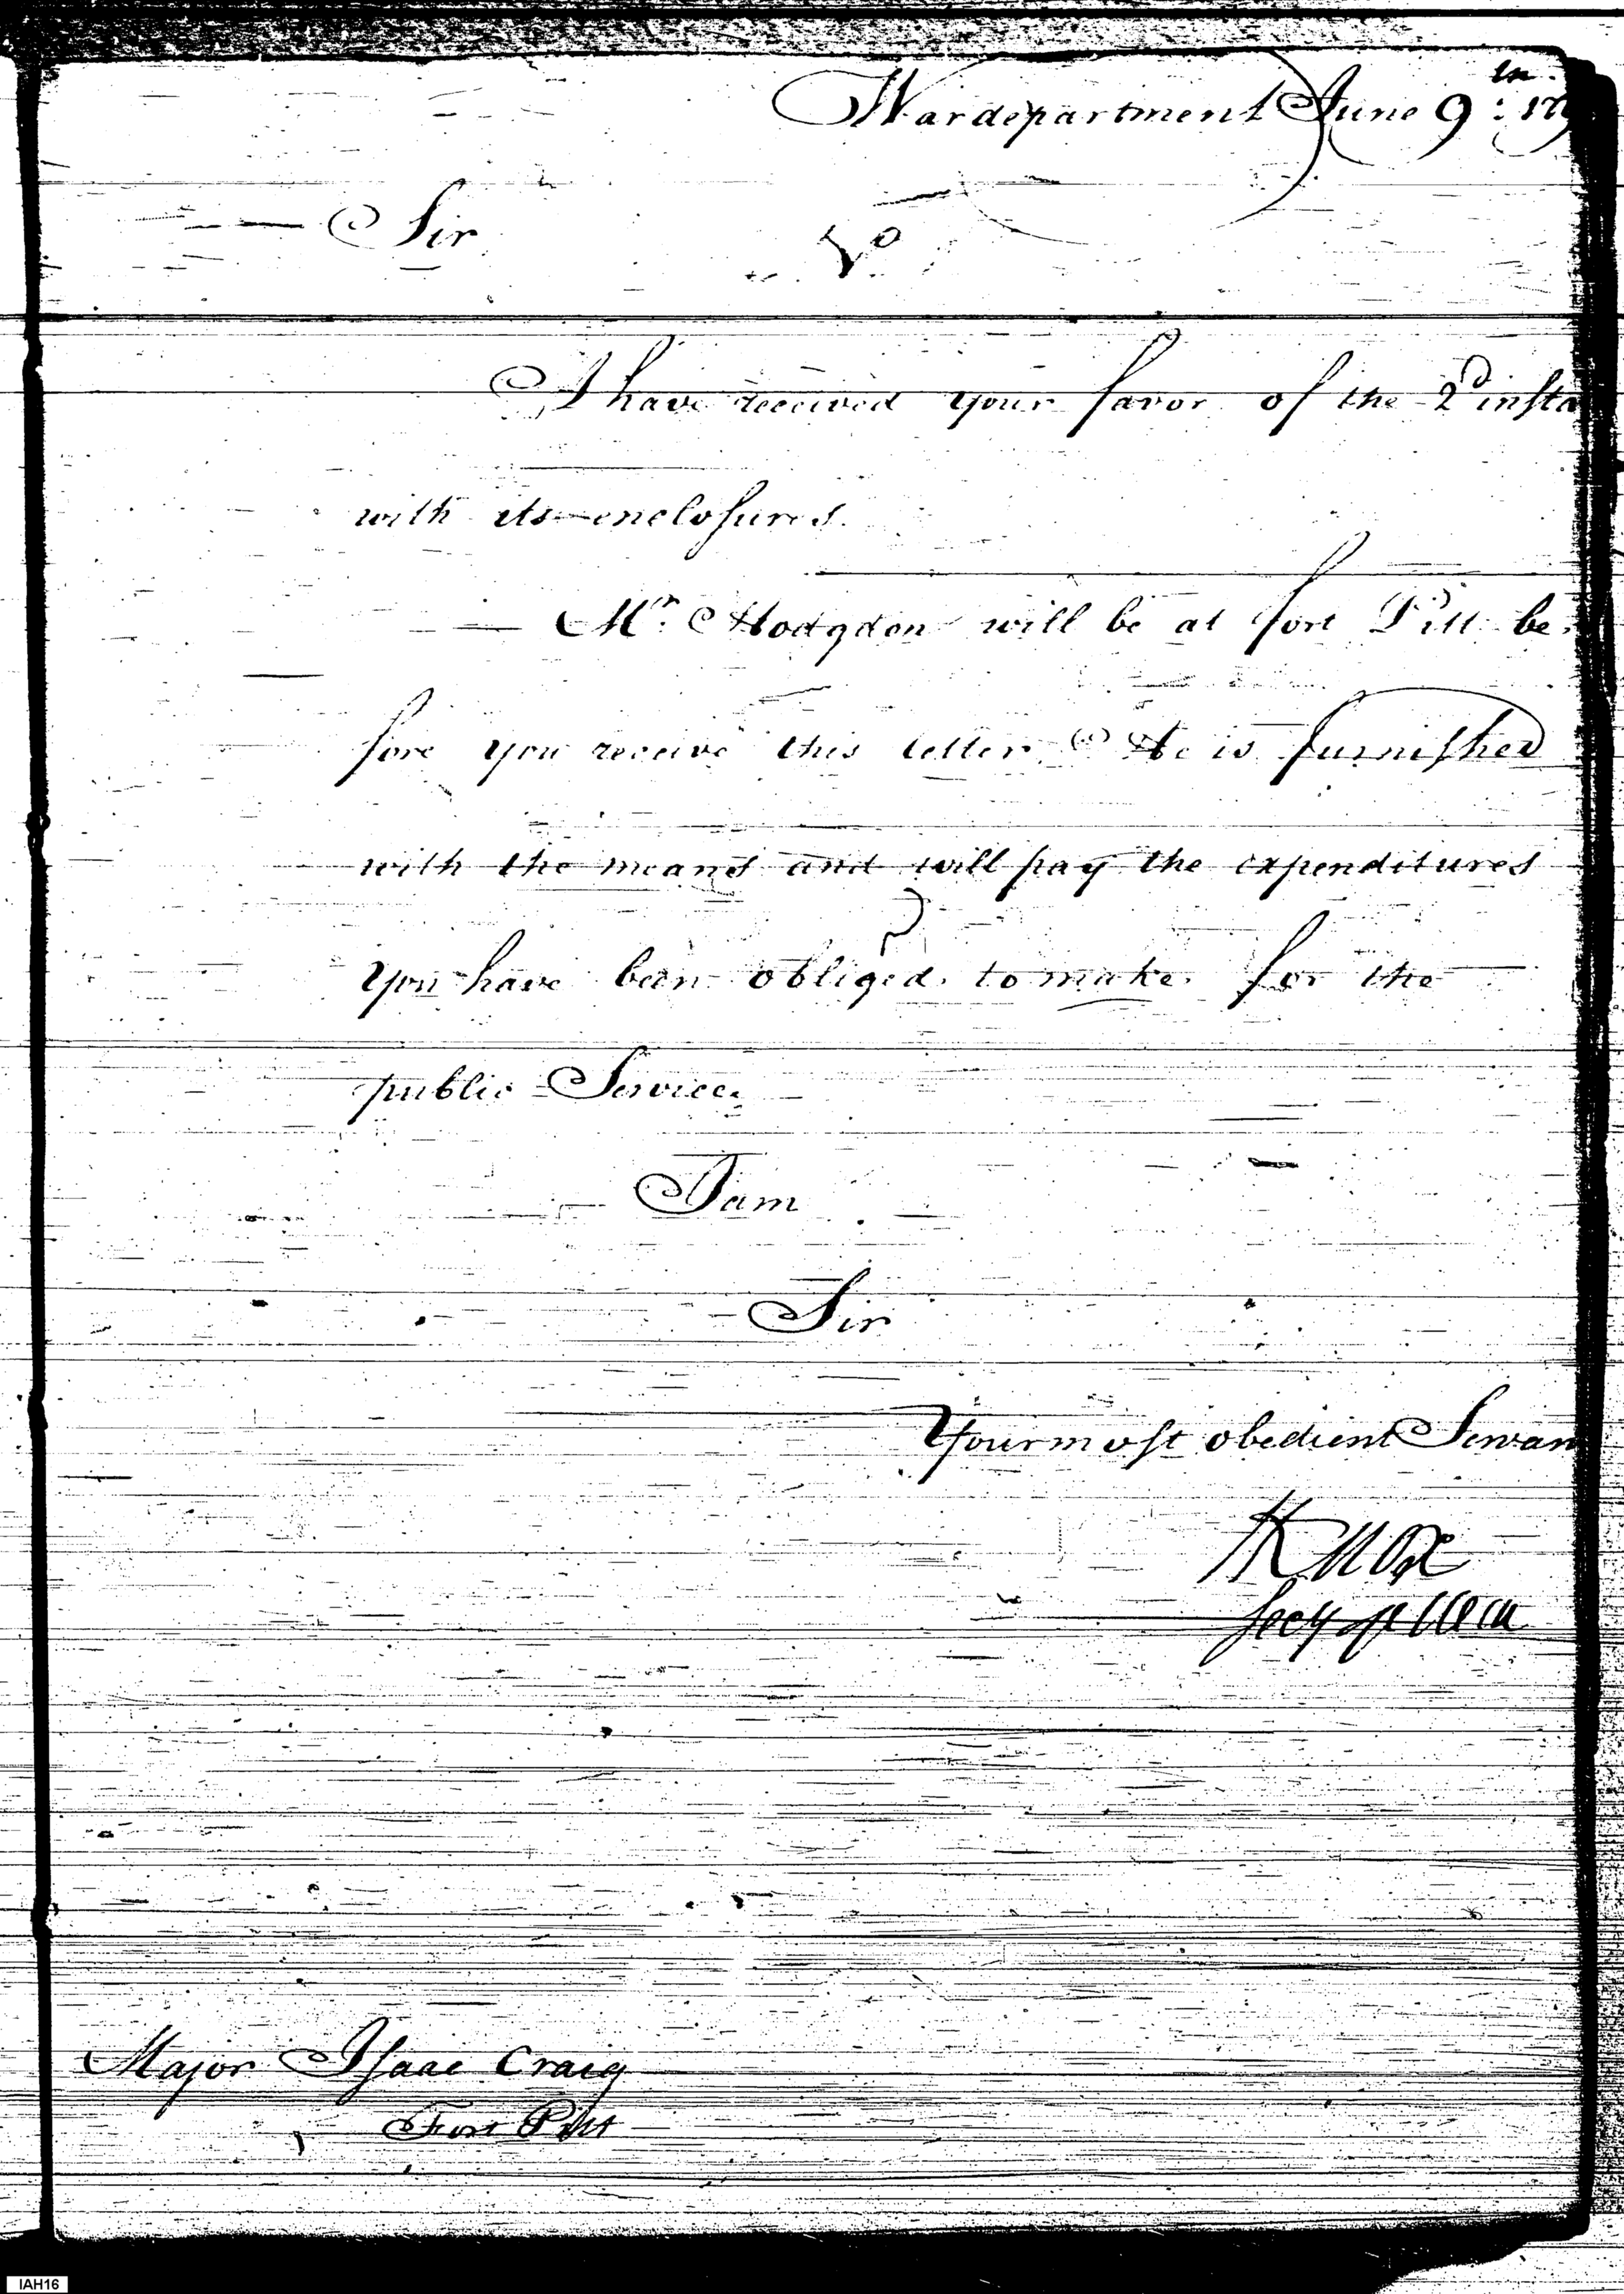 War department June 9th: 179
Sir
I have received your favor of the 2d insta
with its enclosures.
Mr. Hodgdon will be at fort Pitt be
fore you receive this letter He is furnished
with the means and will pay the expenditures
you have been obliged to make for the
public Service.
I am
Sir
Your most obedient Servan
HKnox
Secy of War
Major Isaac Craig
Fort Pitt
IAH16